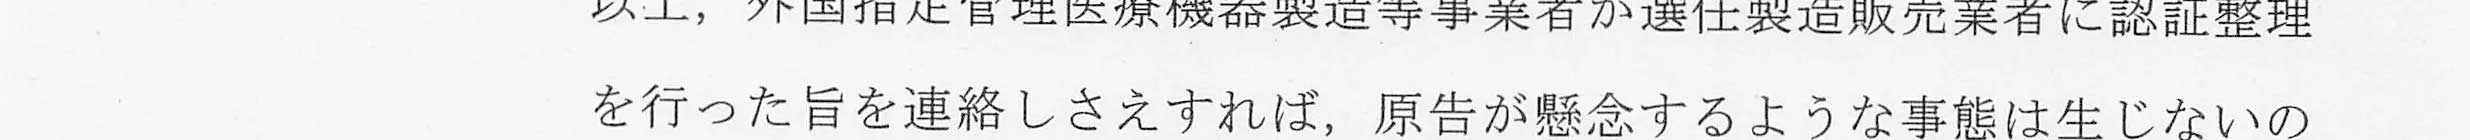 以上，外国指定管理医療機器製造等事業者が選任製造販売業者に認証整理
を行った旨を連絡しさえすれば，原告が懸念するような事態は生じないの